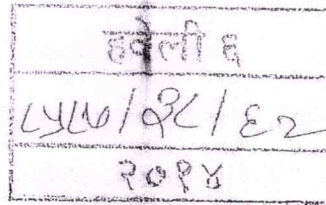 हवेली ६
८५८७/१८/६२
२०१४